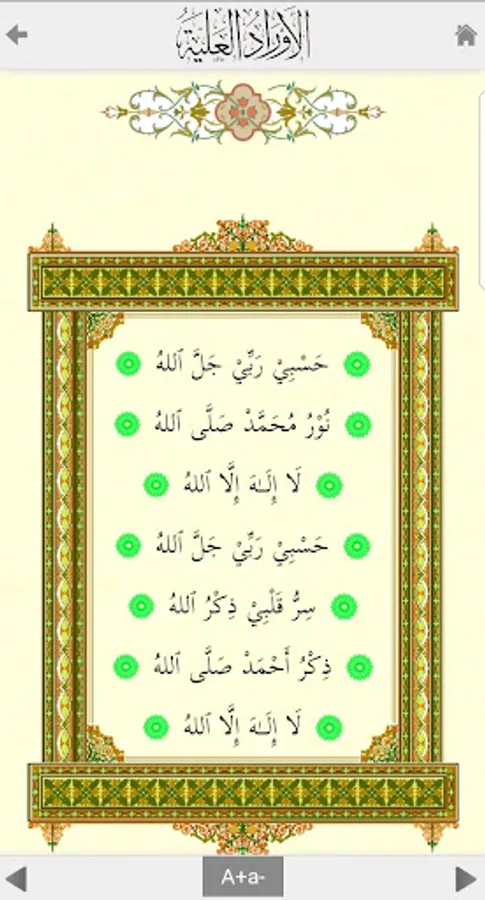 الأوراد العلية
حَسْبِيْ رَبِّيْ جَلَّ ٱللهُ
نُوْرُ مُحَمَّدْ صَلَّى ٱللهُ
لَا إِلَـٰهَ إِلَّا ٱللهُ
حَسْبِيْ رَبِّيْ جَلَّ ٱللهُ
سِرُّ قَلْبِيْ ذِكْرُ ٱللهُ
ذِكْرُ أَحْمَدْ صَلَّى ٱللهُ
لَا إِلَـٰهَ إِلَّا ٱللهُ
A+a-